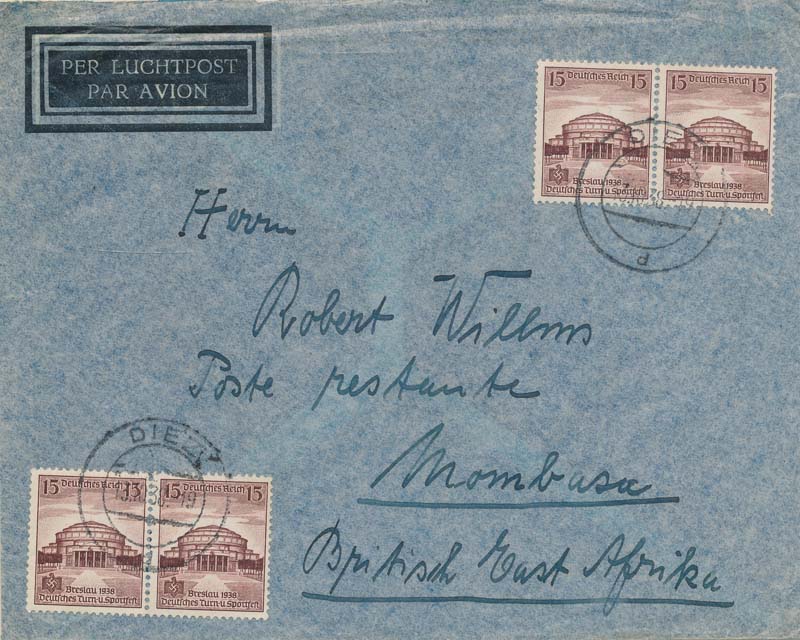 PER LUCHTPOST
PAR AVION
15 Deutsches Reich 15
15 Deutsches Reich 15
Breslau 1938
Deutsches Turn-u. Sportfest
Breslau 1938
Deutsches Turn-u. Sportfest
Herrn
Robert Willms
Poste restante
Mombasa
British East Afrika
DIEZ
15 Deutsches Reich 15
15 Deutsches Reich 15
Breslau 1938
Deutsches Turn-u. Sportfest
Breslau 1938
Deutsches Turn-u. Sportfest